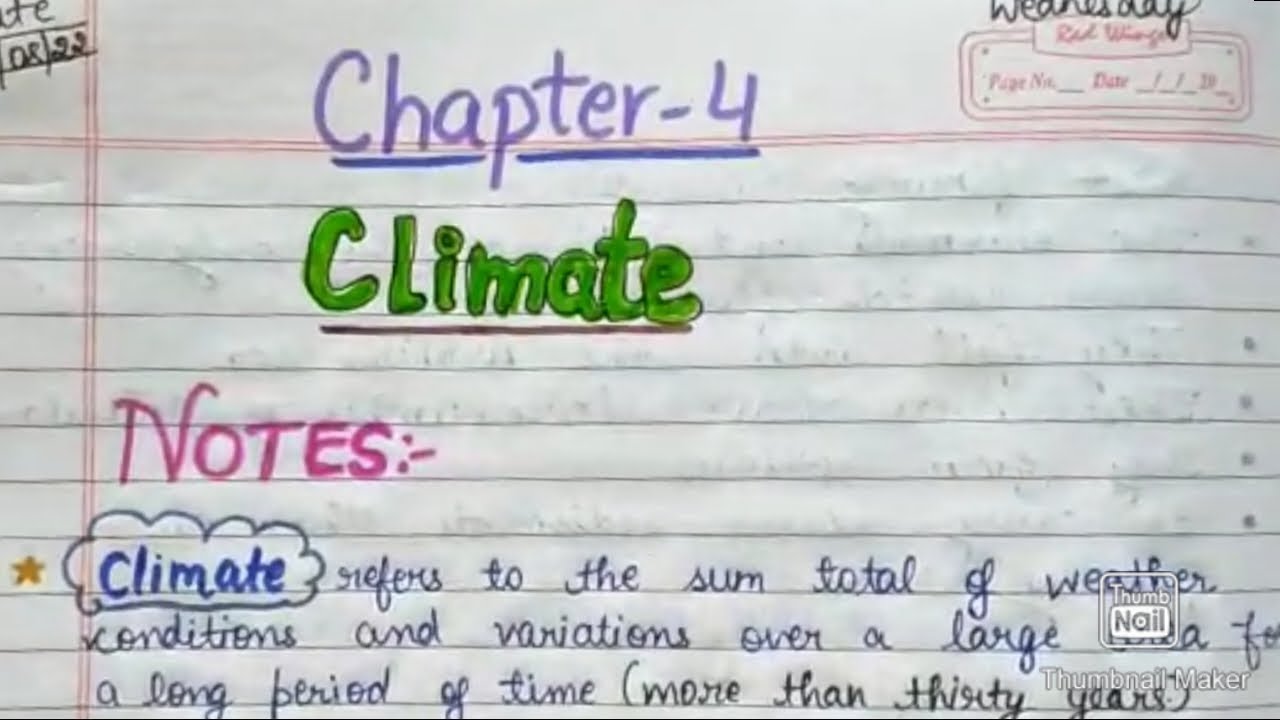 Wednesday
08/22
Red Wings
Page No.___ Date __/__/20__
Chapter-4
Climate
NOTES:-
Climate refers to the sum total of weather
conditions and variations over a large for
a long period of time (more than thirty years)
Thumb
Nail
Thumbnail Maker